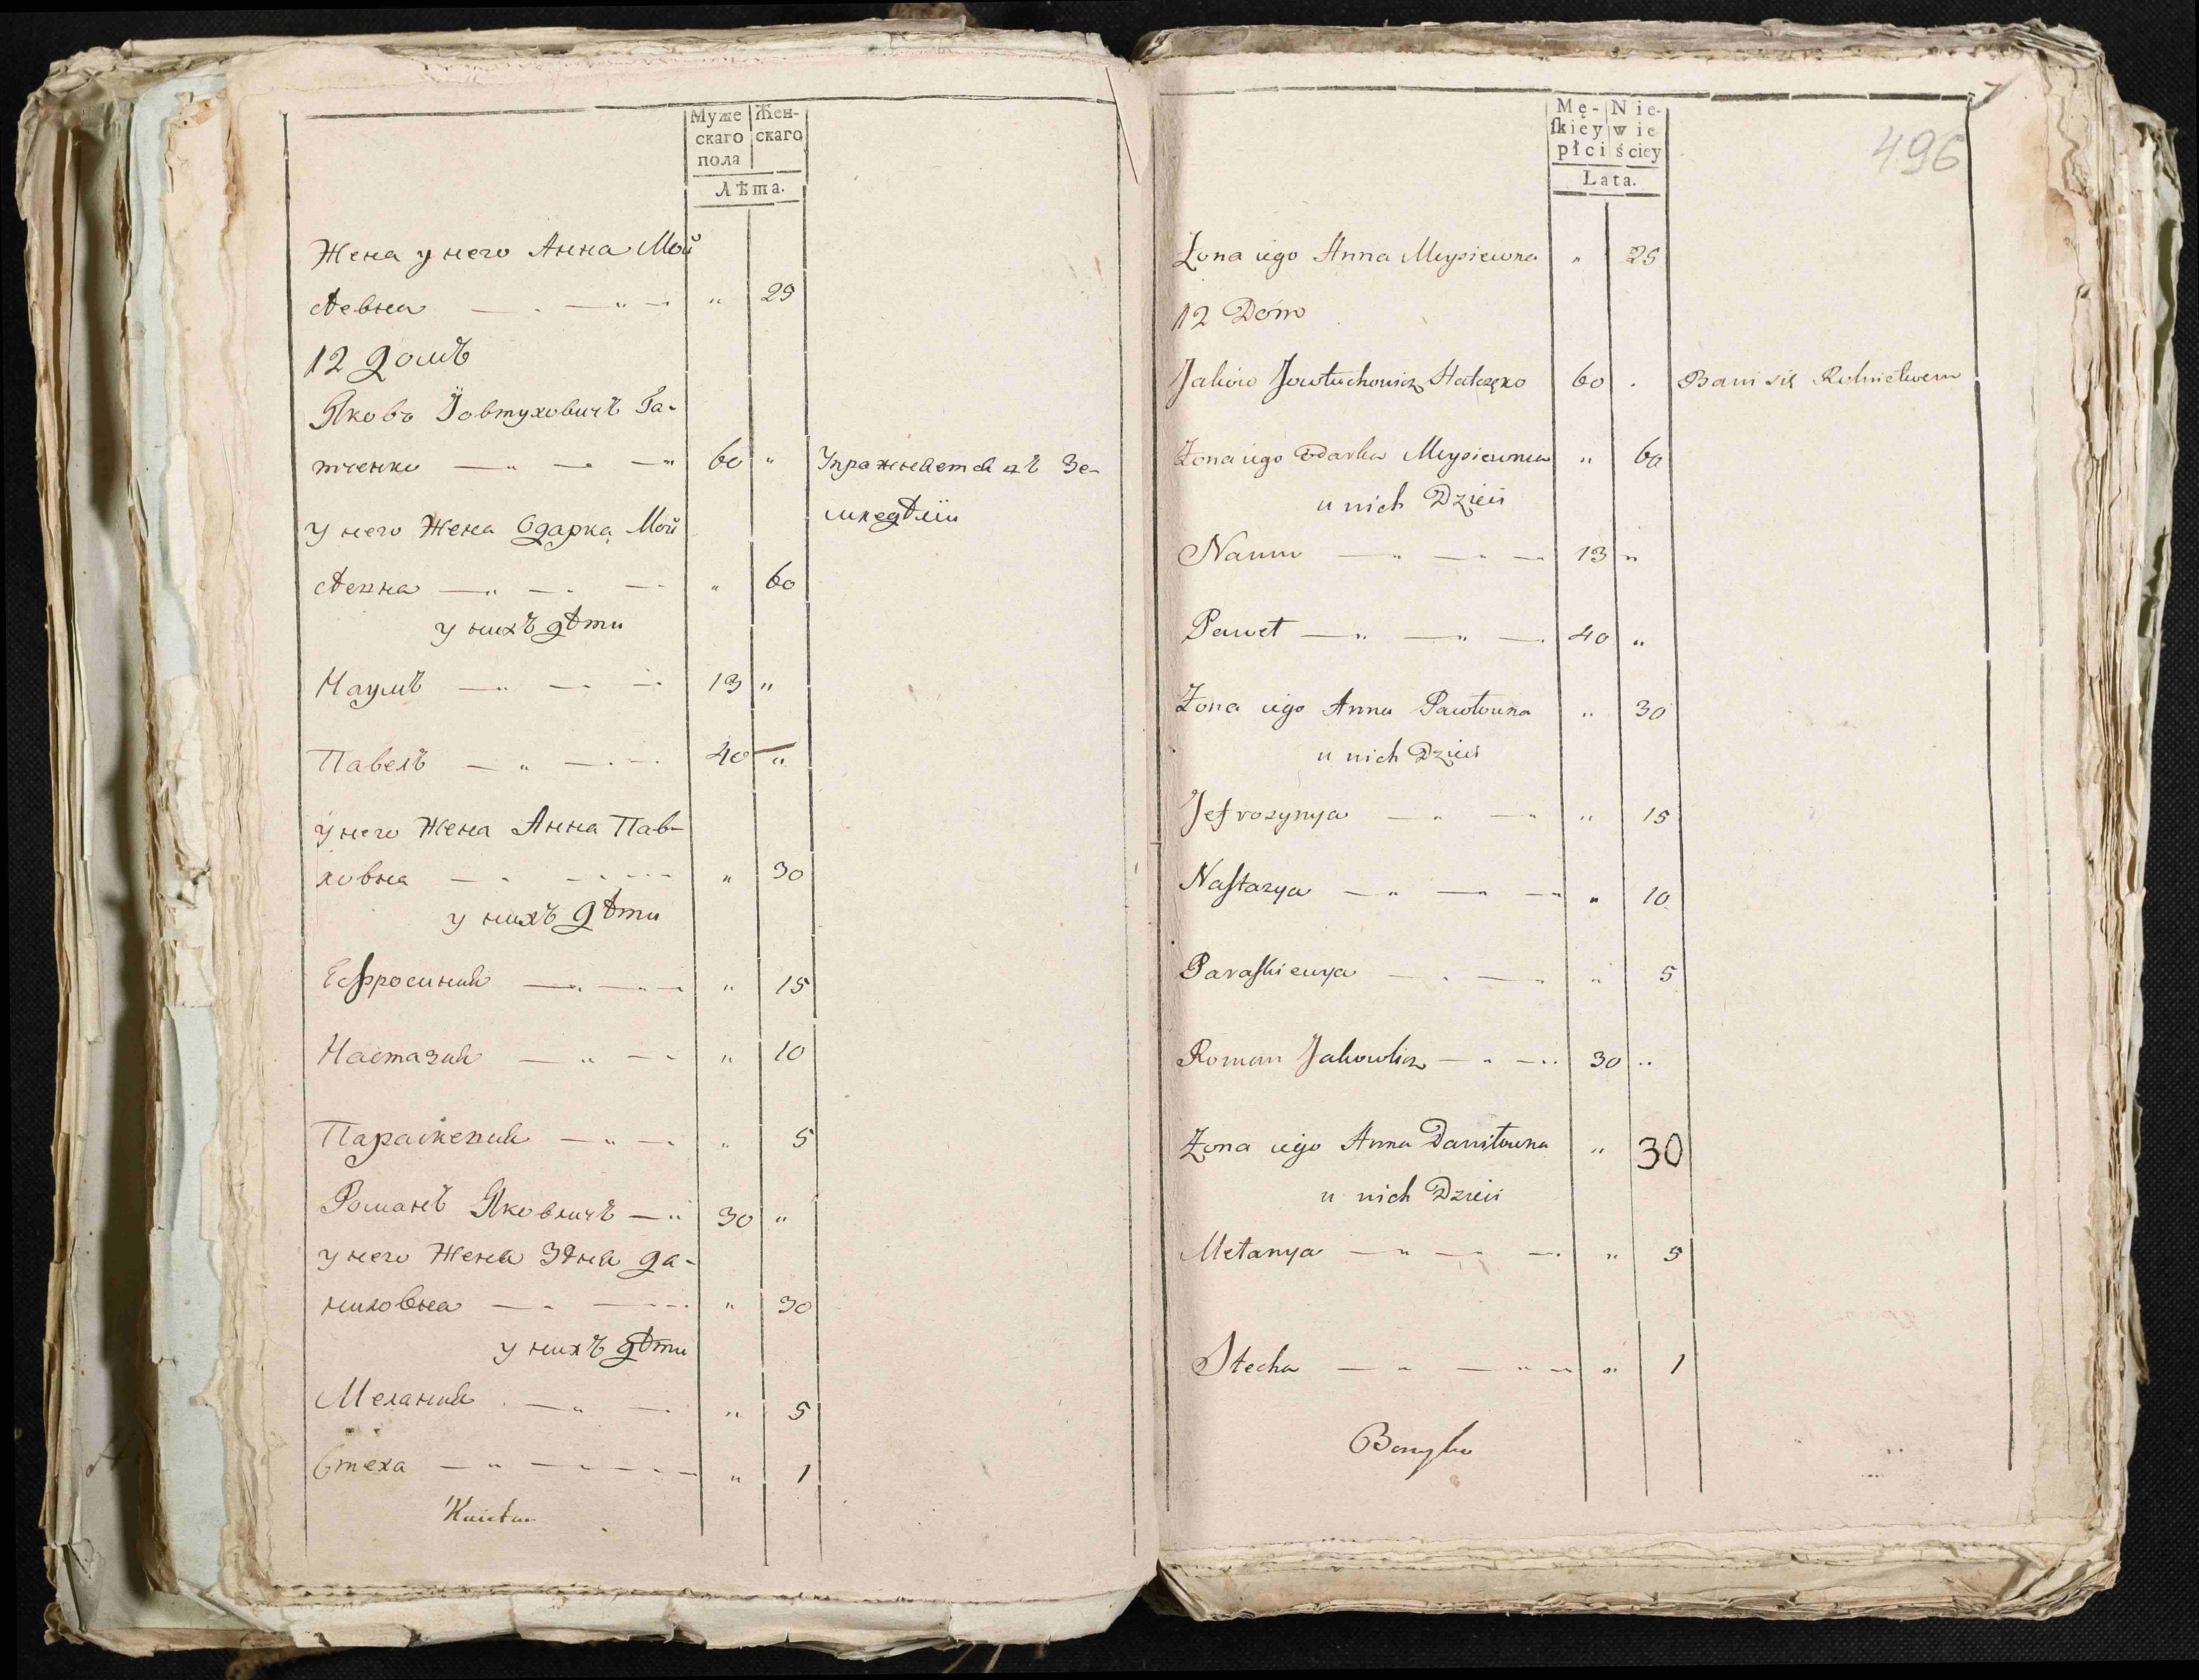 Муже
скаго
пола
Жен-
скаго
Лѣта.
Жена у него Анна Мой
сѣевна " 25
12 домъ
Яковъ Іовтуховичъ Га-
тченко 60 " Упражняется въ Зе-
мледѣліи
у него Жена Одарка Мой
сѣевна " 60
у нихъ дѣти
Наумъ 13 "
Павелъ 40 "
у него Жена Анна Пав-
ловна " 30
у нихъ дѣти
Ефросинія " 15
Настазія " 10
Параскевія " 5
Романъ Яковличъ 30 "
у него Жена Анна Да-
ниловна " 30
у нихъ дѣти
Меланія " 5
Стеха " 1
Mę-
ſkiey
płci
Nie-
wie
ściey
Lata.
496
Żona iego Anna Moysiewna " 25
12 Dom
Jakow Jowtuchowicz Hatczęko 60 . Bawi się Rolnictwem
Żona iego Odarka Moysiewna " 60
u nich Dzieci
Naum 13 "
Paweł 40 "
Żona iego Anna Pawłowna " 30
u nich Dzieci
Jefrozynya " 15
Naſtazya " 10
Paraſkiewya " 5
Roman Jakowlicz 30 "
Żona iego Anna Daniłowna " 30
u nich Dzieci
Mełanya " 5
Stecha " 1